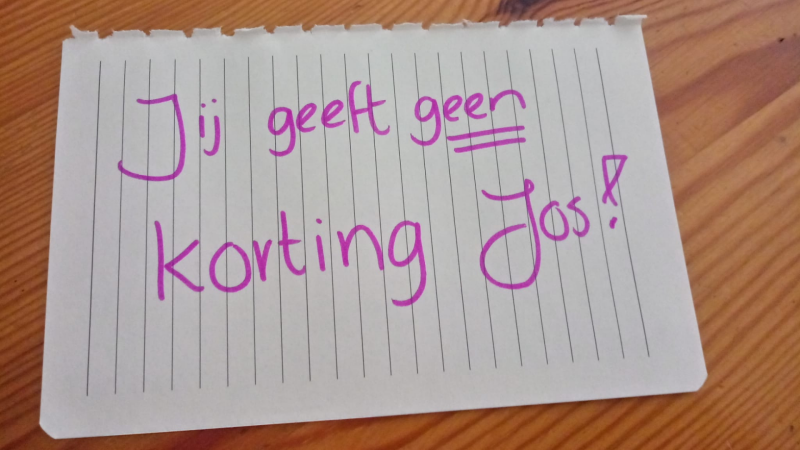 Jij geeft geen
korting Jos!